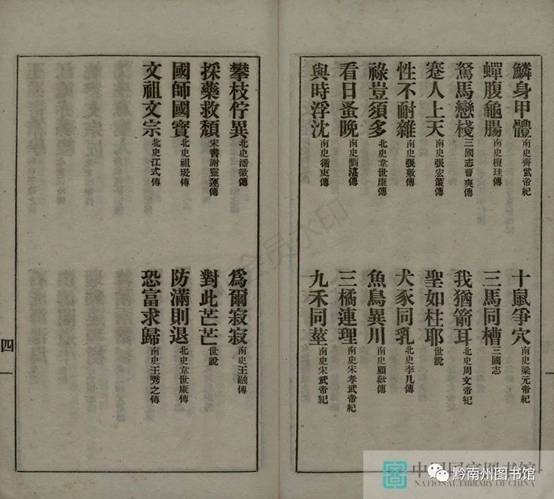 鱗身甲體 南史齊武帝紀 十鼠爭穴 南史梁元帝紀
蟬腹龜腸 南史檀珪傳 三馬同槽 三國志
駑馬戀棧 三國志曹爽傳 我猶箭耳 北史周文帝紀
蹇人上天 南史張宏策傳 聖如柱耶 世說
性不耐雜 南史張敷傳 犬豕同乳 北史李几傳
祿豈須多 北史韋世康傳 魚鳥異川 南史顧歡傳
看日蚤晚 南史劉湛傳 三橘連理 南史宋孝武帝紀
與時浮沈 南史 傳 九禾同莖 南史宋武帝紀
攀枝佇異 北史潘徽傳 爲爾寂寂 南史王融傳
採藥救頹 宋書謝靈運傳 對此芒芒 世說
國師國寶 北史祖珽傳 防滿則退 北史韋世康傳
文祖文宗 北史江式傳 恐富求歸 南史王秀之傳
四
中国国家图书馆
NATIONAL LIBRARY OF CHINA
黔南州图书馆